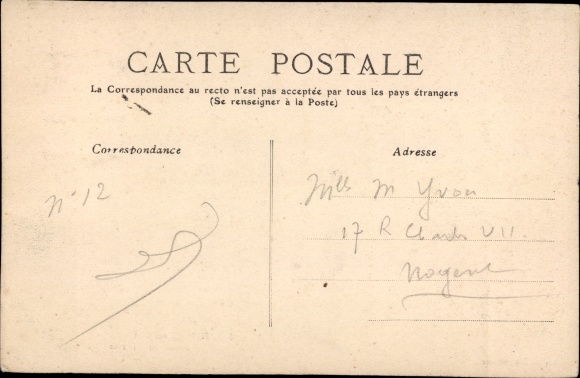 CARTE POSTALE
La Correspondance au recto n'est pas acceptée par tous les pays étrangers
(Se renseigner à la Poste)
Correspondance
Adresse
N° 12
Mlle M Yvon
17 R Charles VII.
Nogent